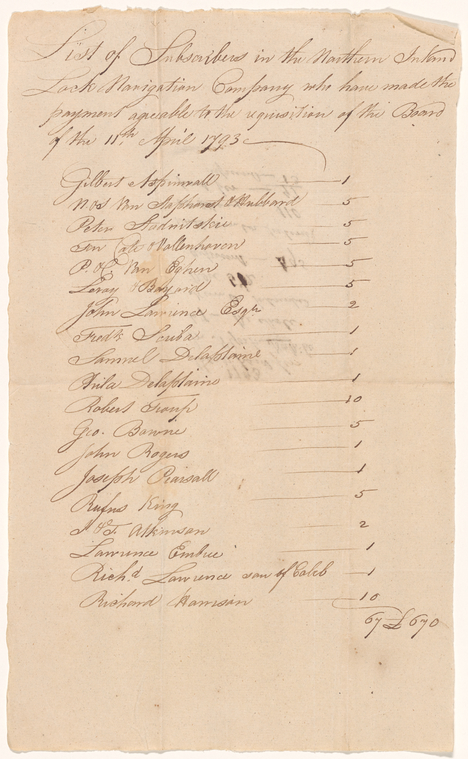 List of Subscribers in the Northern Inland
Lock Navigation Company who have made the
payment agreable to the requisition of the Board
of the 11th April 1793
Gilbert Aspinwall 1
Van Staphorst & Hubbard 5
Peter Stadnitskie 5
Ten Cate & Vollenhoven 5
P. & C. Van Eghen 5
Leroy & Bayard 5
John Lawrence Esqr 2
Fredk Scuba 1
Samuel Delaplaine 1
Phila Delaplaine 1
Robert Troup 10
Geo. Bowne 5
John Rogers 1
Joseph Pearsall 1
Rufus King 5
& F. Atkinson 2
Lawrence Embree 1
Richd Lawrence son of Caleb 1
Richard Harrison 10
67 £ 670